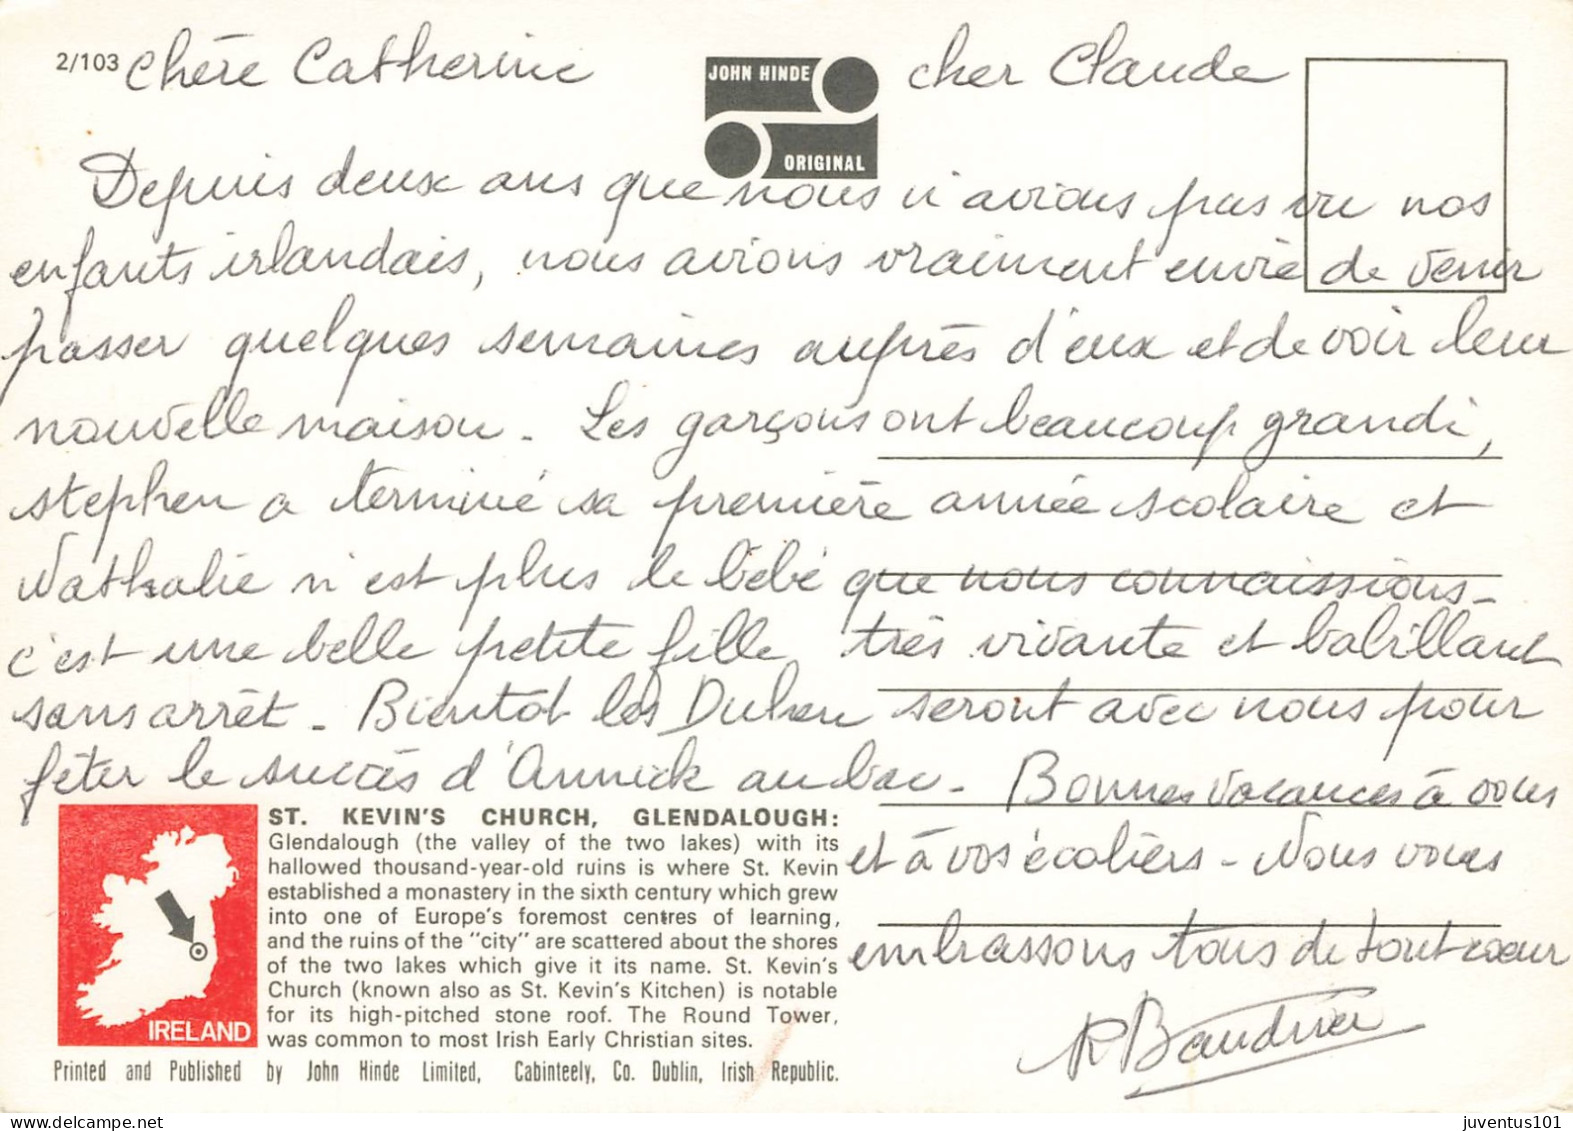 2/103 Chère Catherine cher Claude
JOHN HINDE
ORIGINAL
Depuis deux ans que nous n'avions pas vu nos
enfants irlandais, nous avions vraiment envie de venir
passer quelques semaines auprès d'eux et de voir leur
nouvelle maison. Les garçons ont beaucoup grandi,
Stephen a terminé sa première année scolaire et
Nathalie n'est plus le bébé que nous connaissions -
c'est une belle petite fille très vivante et babillant
sans arrêt. Bientôt les seront avec nous pour
fêter le succès d'Annick au bac. Bonnes vacances à vous
et à vos écoliers - Nous vous
embrassons tous de tout coeur
ST. KEVIN'S CHURCH, GLENDALOUGH:
Glendalough (the valley of the two lakes) with its
hallowed thousand-year-old ruins is where St. Kevin
established a monastery in the sixth century which grew
into one of Europe's foremost centres of learning,
and the ruins of the "city" are scattered about the shores
of the two lakes which give it its name. St. Kevin's
Church (known also as St. Kevin's Kitchen) is notable
for its high-pitched stone roof. The Round Tower,
was common to most Irish Early Christian sites.
IRELAND
Printed and Published by John Hinde Limited, Cabinteely, Co. Dublin, Irish Republic.
juventus101